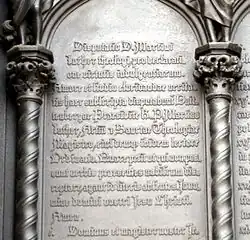 Disputatio D. Martini
Luther theologi, pro declarati-
one virtutis indulgentiarum.
Amore et studio elucidandae verita-
tis haec subscripta disputabuntur Witt-
enbergae, Praesidente R. P. Martino
Luther, Artium et Sacrae Theologiae
Magistro, eiusdemque ibidem lectore
Ordinario. Quare petit, ut qui non pos-
sunt verbis praesentes nobiscum dis-
ceptare, agant id literis absentes. In no-
mine domini nostri Jesu Christi.
Amen.
Dominus et magister noster Je-